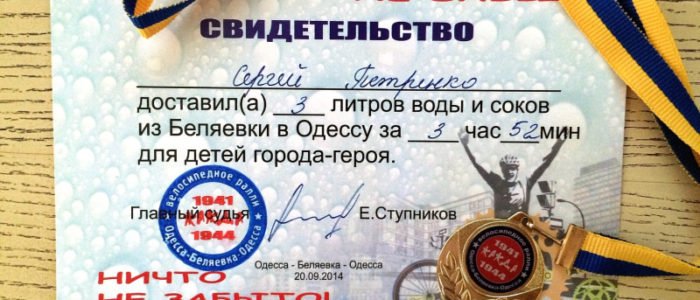 СВИДЕТЕЛЬСТВО
Сергей Петренко
доставил(а) 3 литров воды и соков
из Беляевки в Одессу за 3 час 52 мин
для детей города-героя.
велосипедное ралли
1941
ЖАЖДА
1944
Одесса-Беляевка-Одесса
Главный судья Е.Ступников
Одесса - Беляевка - Одесса
20.09.2014
НИЧТО
НЕ ЗАБЫТО!
велосипедное ралли
1941
ЖАЖДА
1944
Одесса-Беляевка-Одесса